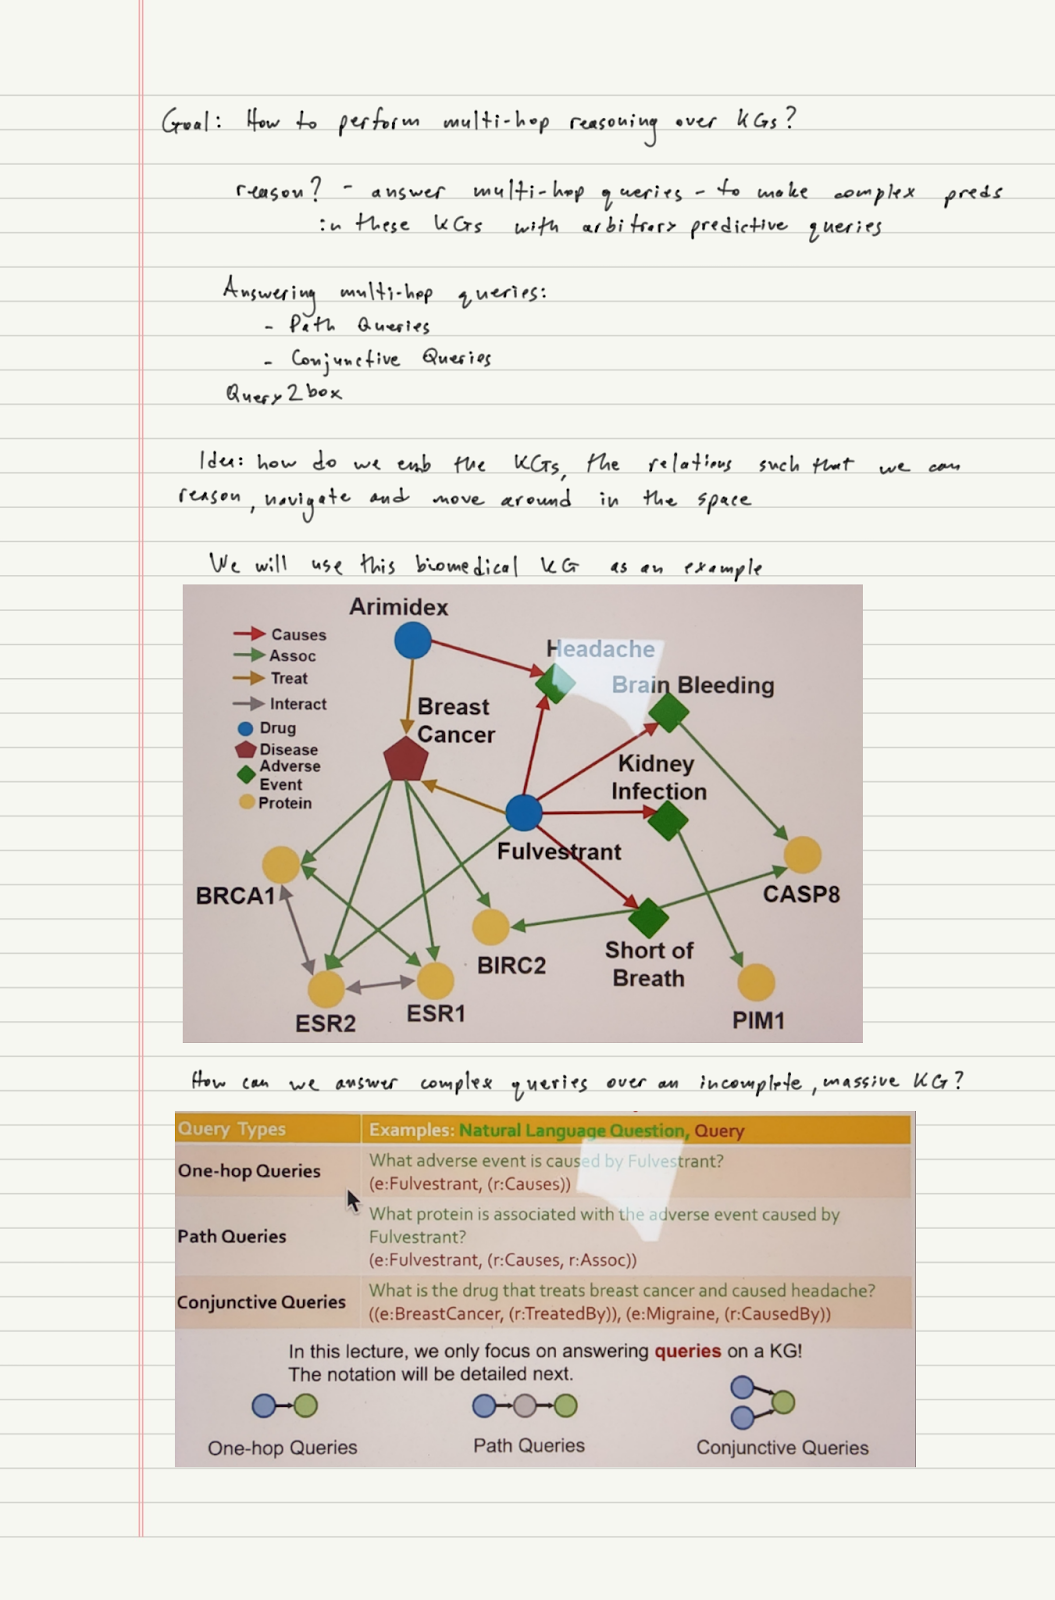 Goal: How to perform multi-hop reasoning over KGs?
reason? - answer multi-hop queries - to make complex preds
in these KGs with arbitrary predictive queries
Answering multi-hop queries:
- Path Queries
- Conjunctive Queries
Query2box
Idea: how do we emb the KGs, the relations such that we can
reason, navigate and move around in the space
We will use this biomedical KG as an example
Arimidex
Causes
Assoc
Treat
Interact
Drug
Disease
Adverse
Event
Protein
Headache
Brain Bleeding
Breast
Cancer
Kidney
Infection
Fulvestrant
BRCA1
CASP8
BIRC2
Short of
Breath
ESR2
ESR1
PIM1
How can we answer complex queries over an incomplete, massive KG?
Query Types Examples: Natural Language Question, Query
One-hop Queries
What adverse event is caused by Fulvestrant?
(e:Fulvestrant, (r:Causes))
Path Queries
What protein is associated with the adverse event caused by
Fulvestrant?
(e:Fulvestrant, (r:Causes, r:Assoc))
Conjunctive Queries
What is the drug that treats breast cancer and caused headache?
((e:BreastCancer, (r:TreatedBy)), (e:Migraine, (r:CausedBy))
In this lecture, we only focus on answering queries on a KG!
The notation will be detailed next.
One-hop Queries
Path Queries
Conjunctive Queries